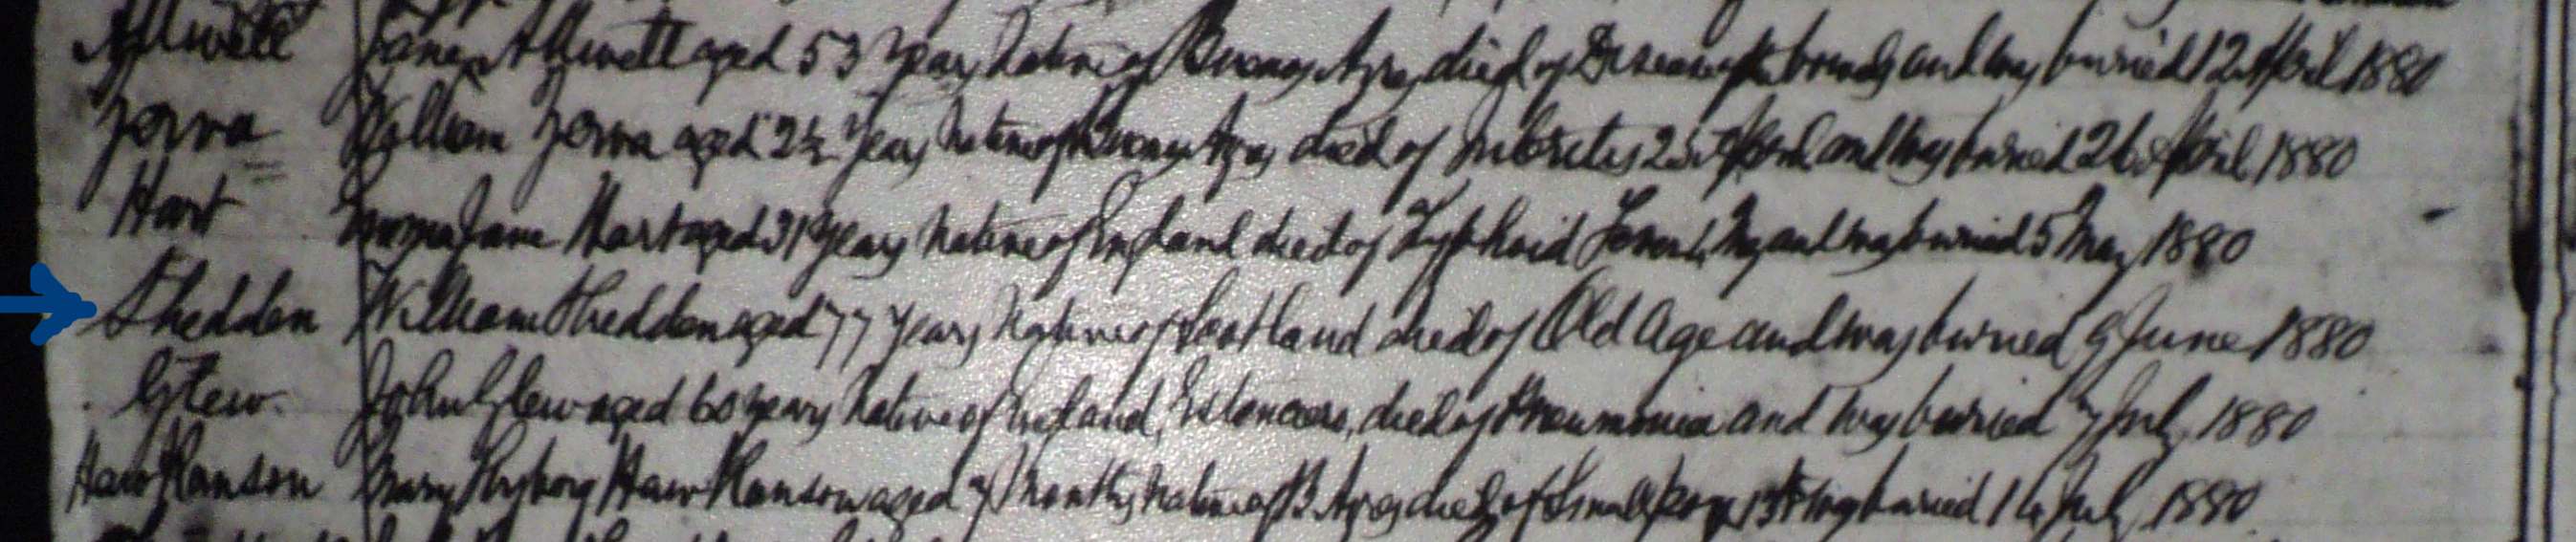 Jane aged 53 Years Native of Buenos Ayres died of Disease of the and was buried 12 April 1880
William aged 2½ Years Native of Buenos Ayres died of 25 April and was buried 26 April 1880
Hart Jane Hart aged 31 Years Native of England died of Typhoid May and was buried 5 May 1880
Shedden William Shedden aged 77 Years Native of Scotland died of Old Age and was buried 9 June 1880
Glew John Glew aged 60 years Native of England, Estanciero, died of Pneumonia and was buried 7 July 1880
Mary aged 7 Months Native of B Ayres died of Small pox 13th & was buried 14 July 1880